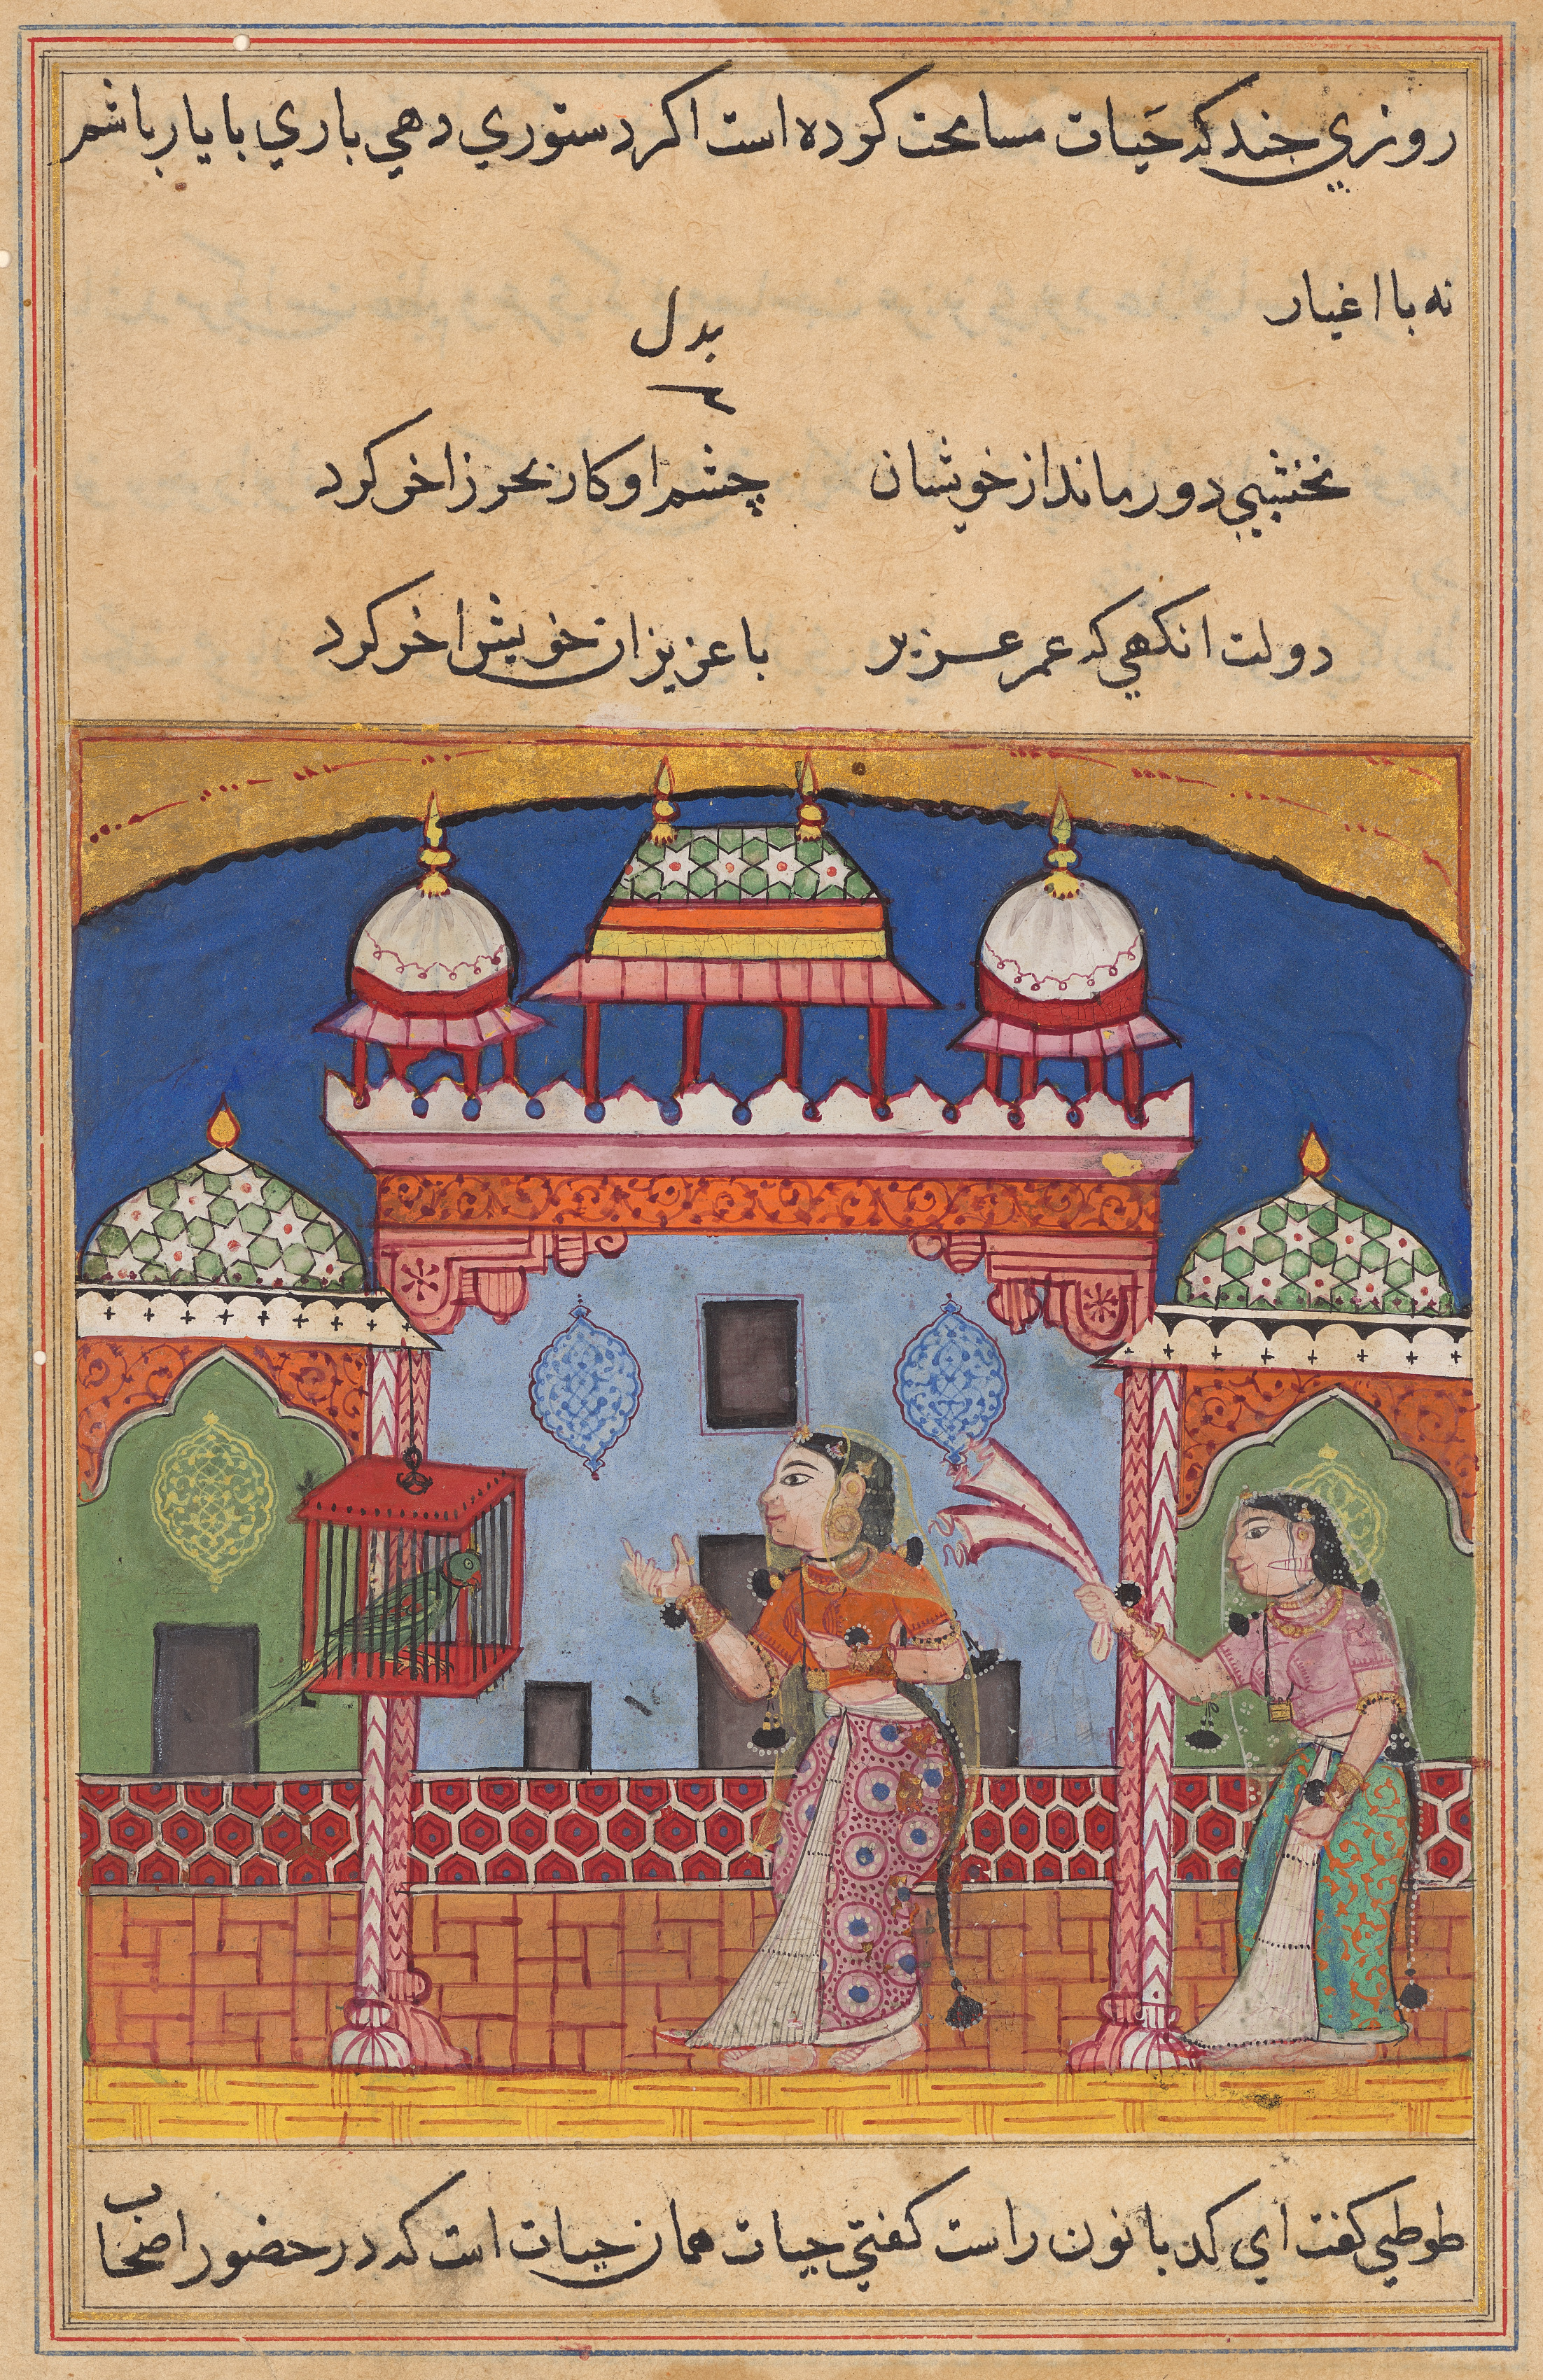 روزي جند که حَیات مسامحت کرده است اکر دستوري دهي باري با یار باشم
نه با اغیار
بدل
نخشبي دور ماند از خویشان چشم او کار بحر زاخر کرد
دولت انکهي که عمر عزیز با عزیزان خویش اخر کرد
طوطي کفت اي کدبانون راست کفتي حیات همان حیات است که در حضور اصحاب